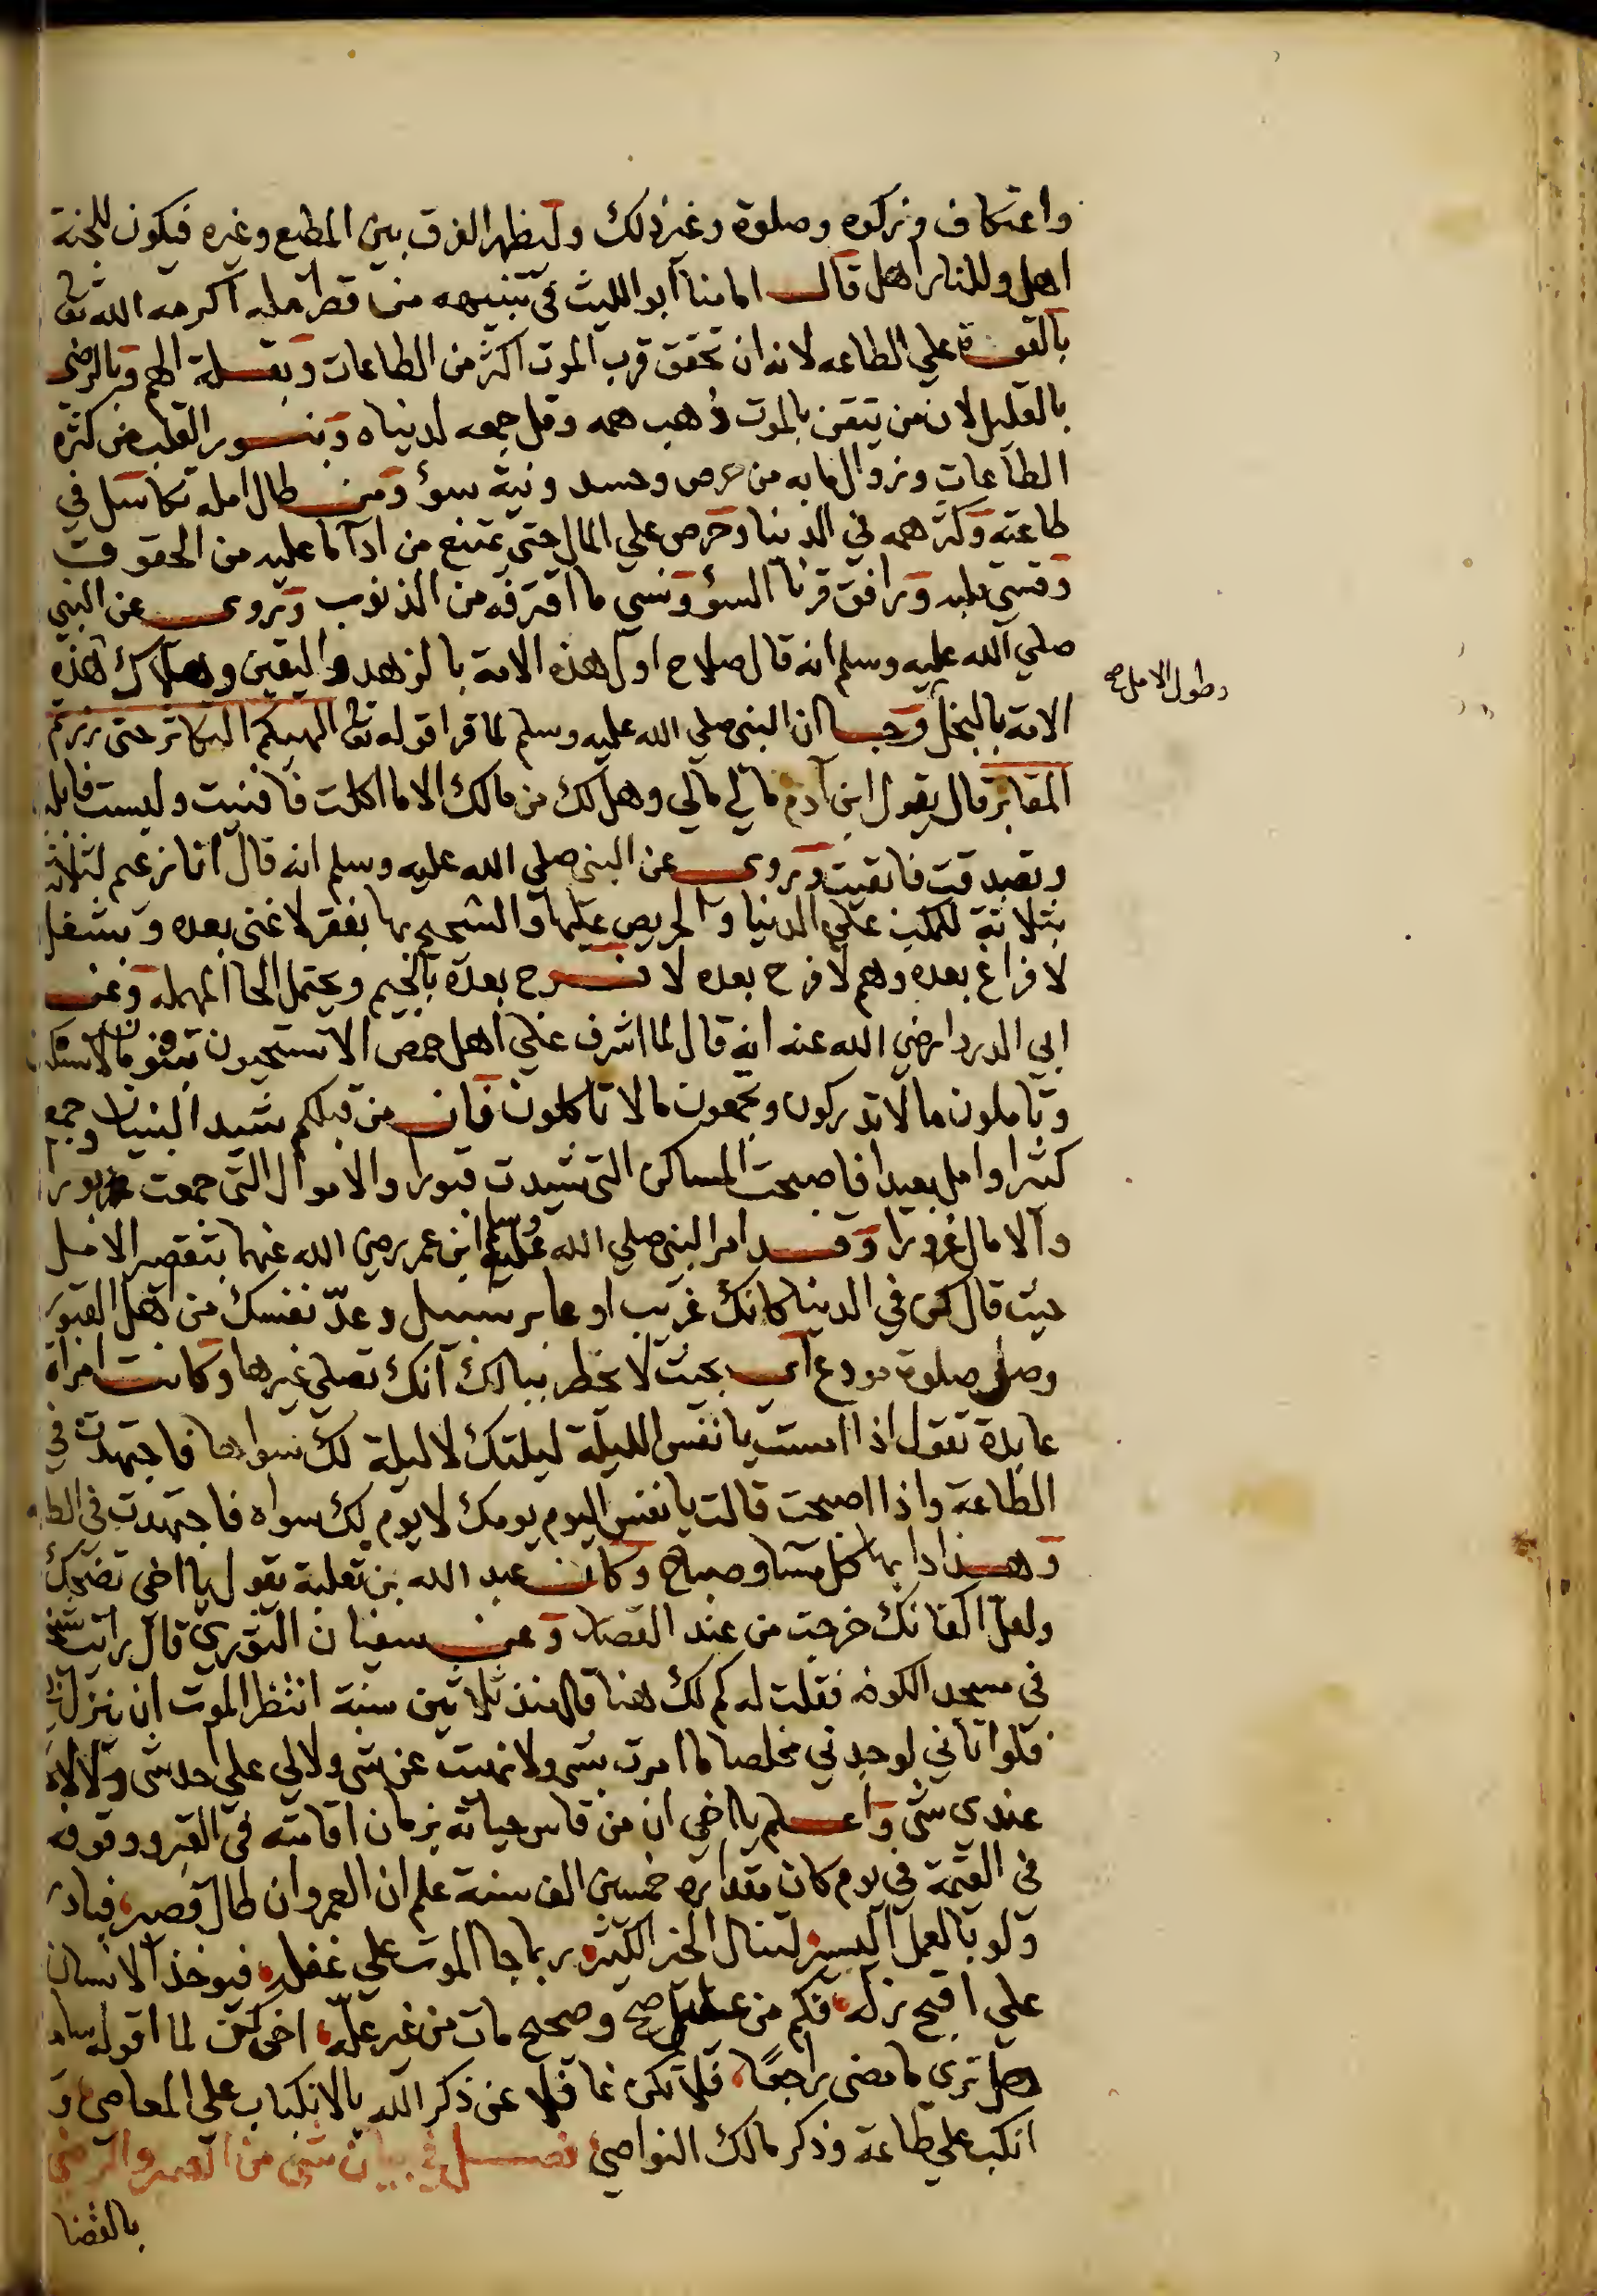 واعتكاف وزكوه وصلوة وغير ذلك وليظهر الفرق بين المطيع وغيره فيكون للجنة
اهل وللنار اهل قال امامنا ابو الليث في تنبيهه من قصر امله اكرمه الله تعالى
بالقوة علي الطاعه لانه ان تحقق قرب الموت اكثر من الطاعات وبقلة الهم وبالرضى
بالقليل لان من تيقن بالموت ذهب همه وقل جمعه لدنياه وبنور القلب من كثرة
الطاعات وزوال مابه من حرص وحسد ونية سوء ومن طال امله تكاسل في
طاعته وكثر همه في الدنيا وحرص علي المال حتى يمتنع من ادآ ما عليه من الحقوق
وقسى قلبه ورافق قرنا السوء ونسي ما اقترفه من الذنوب وروى عن النبي
صلي الله عليه وسلم انه قال صلاح اول هذه الامة بالزهد واليقين وهلاك هذه
وطول الامل صح
الامة بالبخل وجا ان النبي صلي الله عليه وسلم لما قرا قوله تعالى الهيكم التكاثر حتى زرتم
المقابر قال يقول ابن آدم مالي مالي وهل لك من مالك الا ما اكلت فافنيت ولبست فابليت
وتصدقت فابقيت وروى عن النبي صلي الله عليه وسلم انه قال انا زعيم لثلاثة
بثلاثة للمكب علي الدنيا والحريص عليها والشحيح بها بفقر لا غنى بعده وبشغل
لا فراغ بعده وهم لا فرح بعده لا فرح بعده بالجيم ويحتمل الحا المهمله وعن
ابي الدردا رضي الله عنه انه قال لما اشرف علي اهل حمص الا تستحيون تبنون مالا تسكنون
وتاملون ما لا تدركون وتجمعون مالا تاكلون فان من قبلكم شيد البنيان وجمع
كثيرا وامل بعيدا فاصبحت المساكن التي شيدت قبورا والاموال التي جمعت بورا
والامال غرورا وقد امر النبي صلي الله عليه وسلم ابن عمر رضي الله عنهما بتقصير الامل
حيث قال كن في الدنيا كانك غريب او عابر سبيل وعدّ نفسك من اهل القبور
وصل صلوة مودع اى بحيث لا يخطر ببالك انك تصلي غيرها وكانت امراة
عابدة تقول اذا امست يا نفس الليلة ليلتك لا ليلة لك سواها فاجتهدت في
الطاعة واذا اصبحت قالت يا نفس اليوم يومك لا يوم لك سواه فاجتهدت في الطاعه
وهذا دابها كل مسا وصباح وكان عبد الله بن ثعلبة يقول يا اخى تضحك
ولعل اكفانك خرجت من عند القصار وعن سفيان الثوري قال رايت شيخا
في مسجد الكوفة فقلت له كم لك هنا قال منذ ثلاثين سنة انتظر الموت ان ينزل بي
فلو اتاني لوجدني مخلصا ما امرت بشى ولا نهيت عن شى ولا لي علي احد شى ولا لاحد
عندى شى واعلم يا اخي ان من قاس حياته بزمان اقامته في القبر ووقوفه
في القيمة في يوم كان مقداره خمسين الف سنة علم ان العمر وان طال قصير، فبادر
ولو بالعمل اليسير لتنال الخير الكثير، ربما جا الموت علي غفلة، فيوخذ الانسان
علي اقبح زله، فكم من عليل صح وصحيح مات من غير علة، اخى كن لما اقوله سامعا
وهل ترى ما مضى راجعًا، فلا تكن غافلا عن ذكر الله بالانكباب علي المعاصى، و
انكب علي طاعة وذكر مالك النواصي فصل في بيان شي من الصبر والرضى
بالقضا